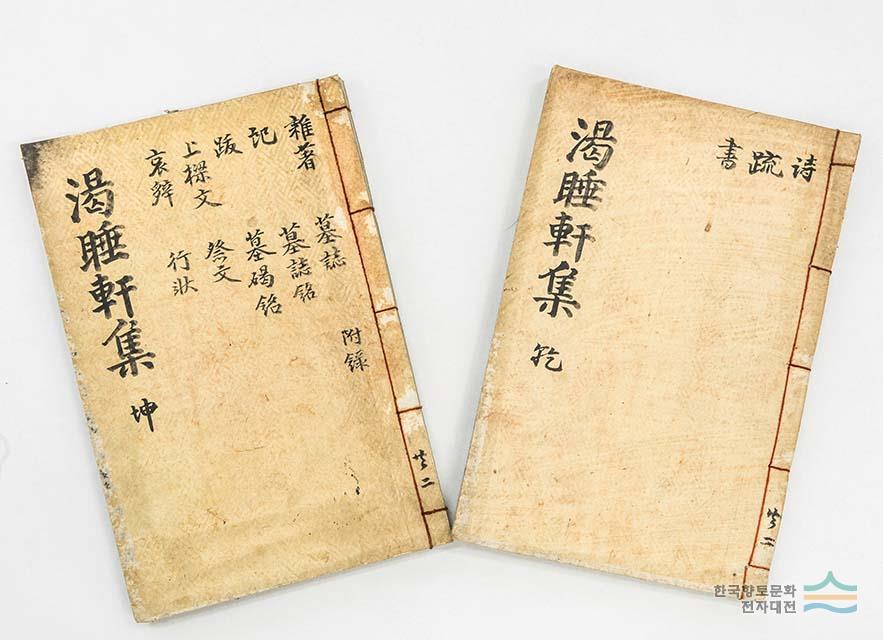 渴睡軒集 坤
雜著
記
跋
上樑文
哀辭
墓誌
墓誌銘
墓碣銘
祭文
行狀
附錄
共二
渴睡軒集 乾
詩
疏
書
共二
한국향토문화
전자대전